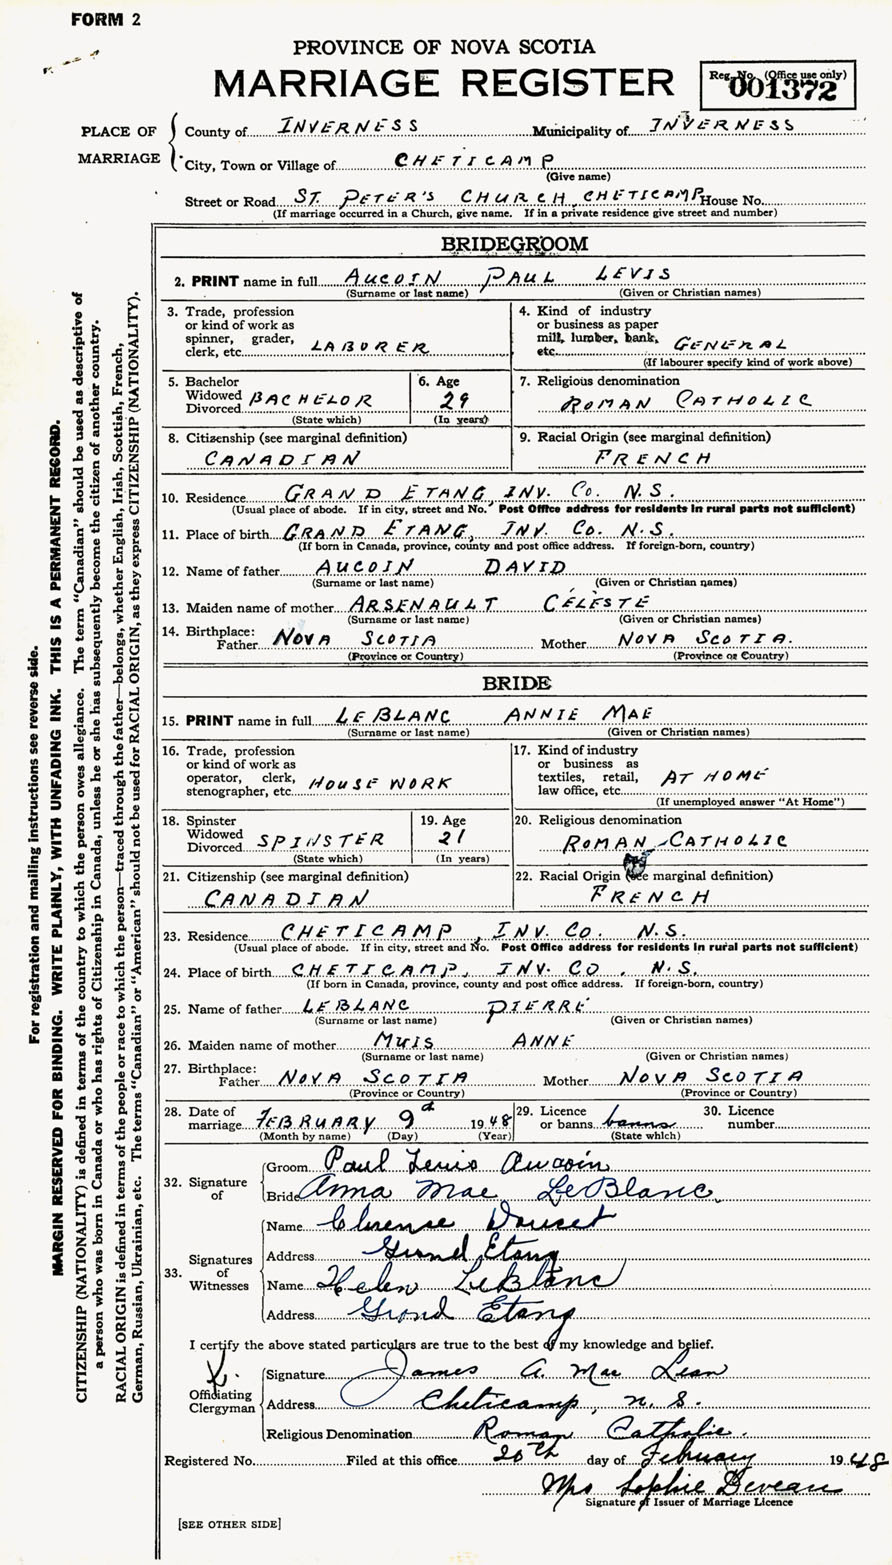 FORM 2
PROVINCE OF NOVA SCOTIA
MARRIAGE REGISTER
Reg. No. (Office use only)
001372
PLACE OF MARRIAGE
County of INVERNESS Municipality of INVERNESS
City, Town or Village of CHETICAMP
(Give name)
Street or Road ST. PETER'S CHURCH, CHETICAMP House No.
(If marriage occurred in a Church, give name. If in a private residence give street and number)
BRIDEGROOM
2. PRINT name in full AUCOIN PAUL LEVIS
(Surname or last name) (Given or Christian names)
3. Trade, profession
or kind of work as
spinner, grader,
clerk, etc. LABORER
4. Kind of industry
or business as paper
mill, lumber, bank,
etc. GENERAL
(If labourer specify kind of work above)
5. Bachelor
Widowed
Divorced BACHELOR
(State which)
6. Age
29
(In years)
7. Religious denomination
ROMAN CATHOLIC
8. Citizenship (see marginal definition)
CANADIAN
9. Racial Origin (see marginal definition)
FRENCH
10. Residence GRAND ETANG, INV. Co. N.S.
(Usual place of abode. If in city, street and No. Post Office address for residents in rural parts not sufficient)
11. Place of birth GRAND ETANG, INV. Co. N.S.
(If born in Canada, province, county and post office address. If foreign-born, country)
12. Name of father AUCOIN DAVID
(Surname or last name) (Given or Christian names)
13. Maiden name of mother ARSENAULT CÉLÈSTE
(Surname or last name) (Given or Christian names)
14. Birthplace:
Father NOVA SCOTIA Mother NOVA SCOTIA.
(Province or Country) (Province or Country)
BRIDE
15. PRINT name in full LEBLANC ANNIE MAE
(Surname or last name) (Given or Christian names)
16. Trade, profession
or kind of work as
operator, clerk,
stenographer, etc. HOUSE WORK
17. Kind of industry
or business as
textiles, retail,
law office, etc. AT HOME
(If unemployed answer "At Home")
18. Spinster
Widowed
Divorced SPINSTER
(State which)
19. Age
21
(In years)
20. Religious denomination
ROMAN-CATHOLIC
21. Citizenship (see marginal definition)
CANADIAN
22. Racial Origin (see marginal definition)
FRENCH
23. Residence CHETICAMP, INV. Co. N.S.
(Usual place of abode. If in city, street and No. Post Office address for residents in rural parts not sufficient)
24. Place of birth CHETICAMP, INV. CO. N.S.
(If born in Canada, province, county and post office address. If foreign-born, country)
25. Name of father LEBLANC PIERRE
(Surname or last name) (Given or Christian names)
26. Maiden name of mother MUIS ANNE
(Surname or last name) (Given or Christian names)
27. Birthplace:
Father NOVA SCOTIA Mother NOVA SCOTIA
(Province or Country) (Province or Country)
28. Date of
marriage FEBRUARY 9d 1948
(Month by name) (Day) (Year)
29. Licence
or banns banns
(State which)
30. Licence
number
32. Signature of
Groom Paul Levis Aucoin
Bride Anna Mae LeBlanc
33. Signatures of Witnesses
Name Clarence Doucet
Address Grand Etang
Name Helen LeBlanc
Address Grand Etang
I certify the above stated particulars are true to the best of my knowledge and belief.
Officiating Clergyman
Signature James A. Mac Lean
Address Cheticamp, N.S.
Religious Denomination Roman Catholic.
Registered No. Filed at this office 20th day of February 1948
Mrs Sophie Deveau
Signature of Issuer of Marriage Licence
[SEE OTHER SIDE]
For registration and mailing instructions see reverse side.
MARGIN RESERVED FOR BINDING. WRITE PLAINLY, WITH UNFADING INK. THIS IS A PERMANENT RECORD.
CITIZENSHIP (NATIONALITY) is defined in terms of the country to which the person owes allegiance. The term "Canadian" should be used as descriptive of
a person who was born in Canada or who has rights of Citizenship in Canada, unless he or she has subsequently become the citizen of another country.
RACIAL ORIGIN is defined in terms of the people or race to which the person—traced through the father—belongs, whether English, Irish, Scottish, French,
German, Russian, Ukrainian, etc. The terms "Canadian" or "American" should not be used for RACIAL ORIGIN, as they express CITIZENSHIP (NATIONALITY).